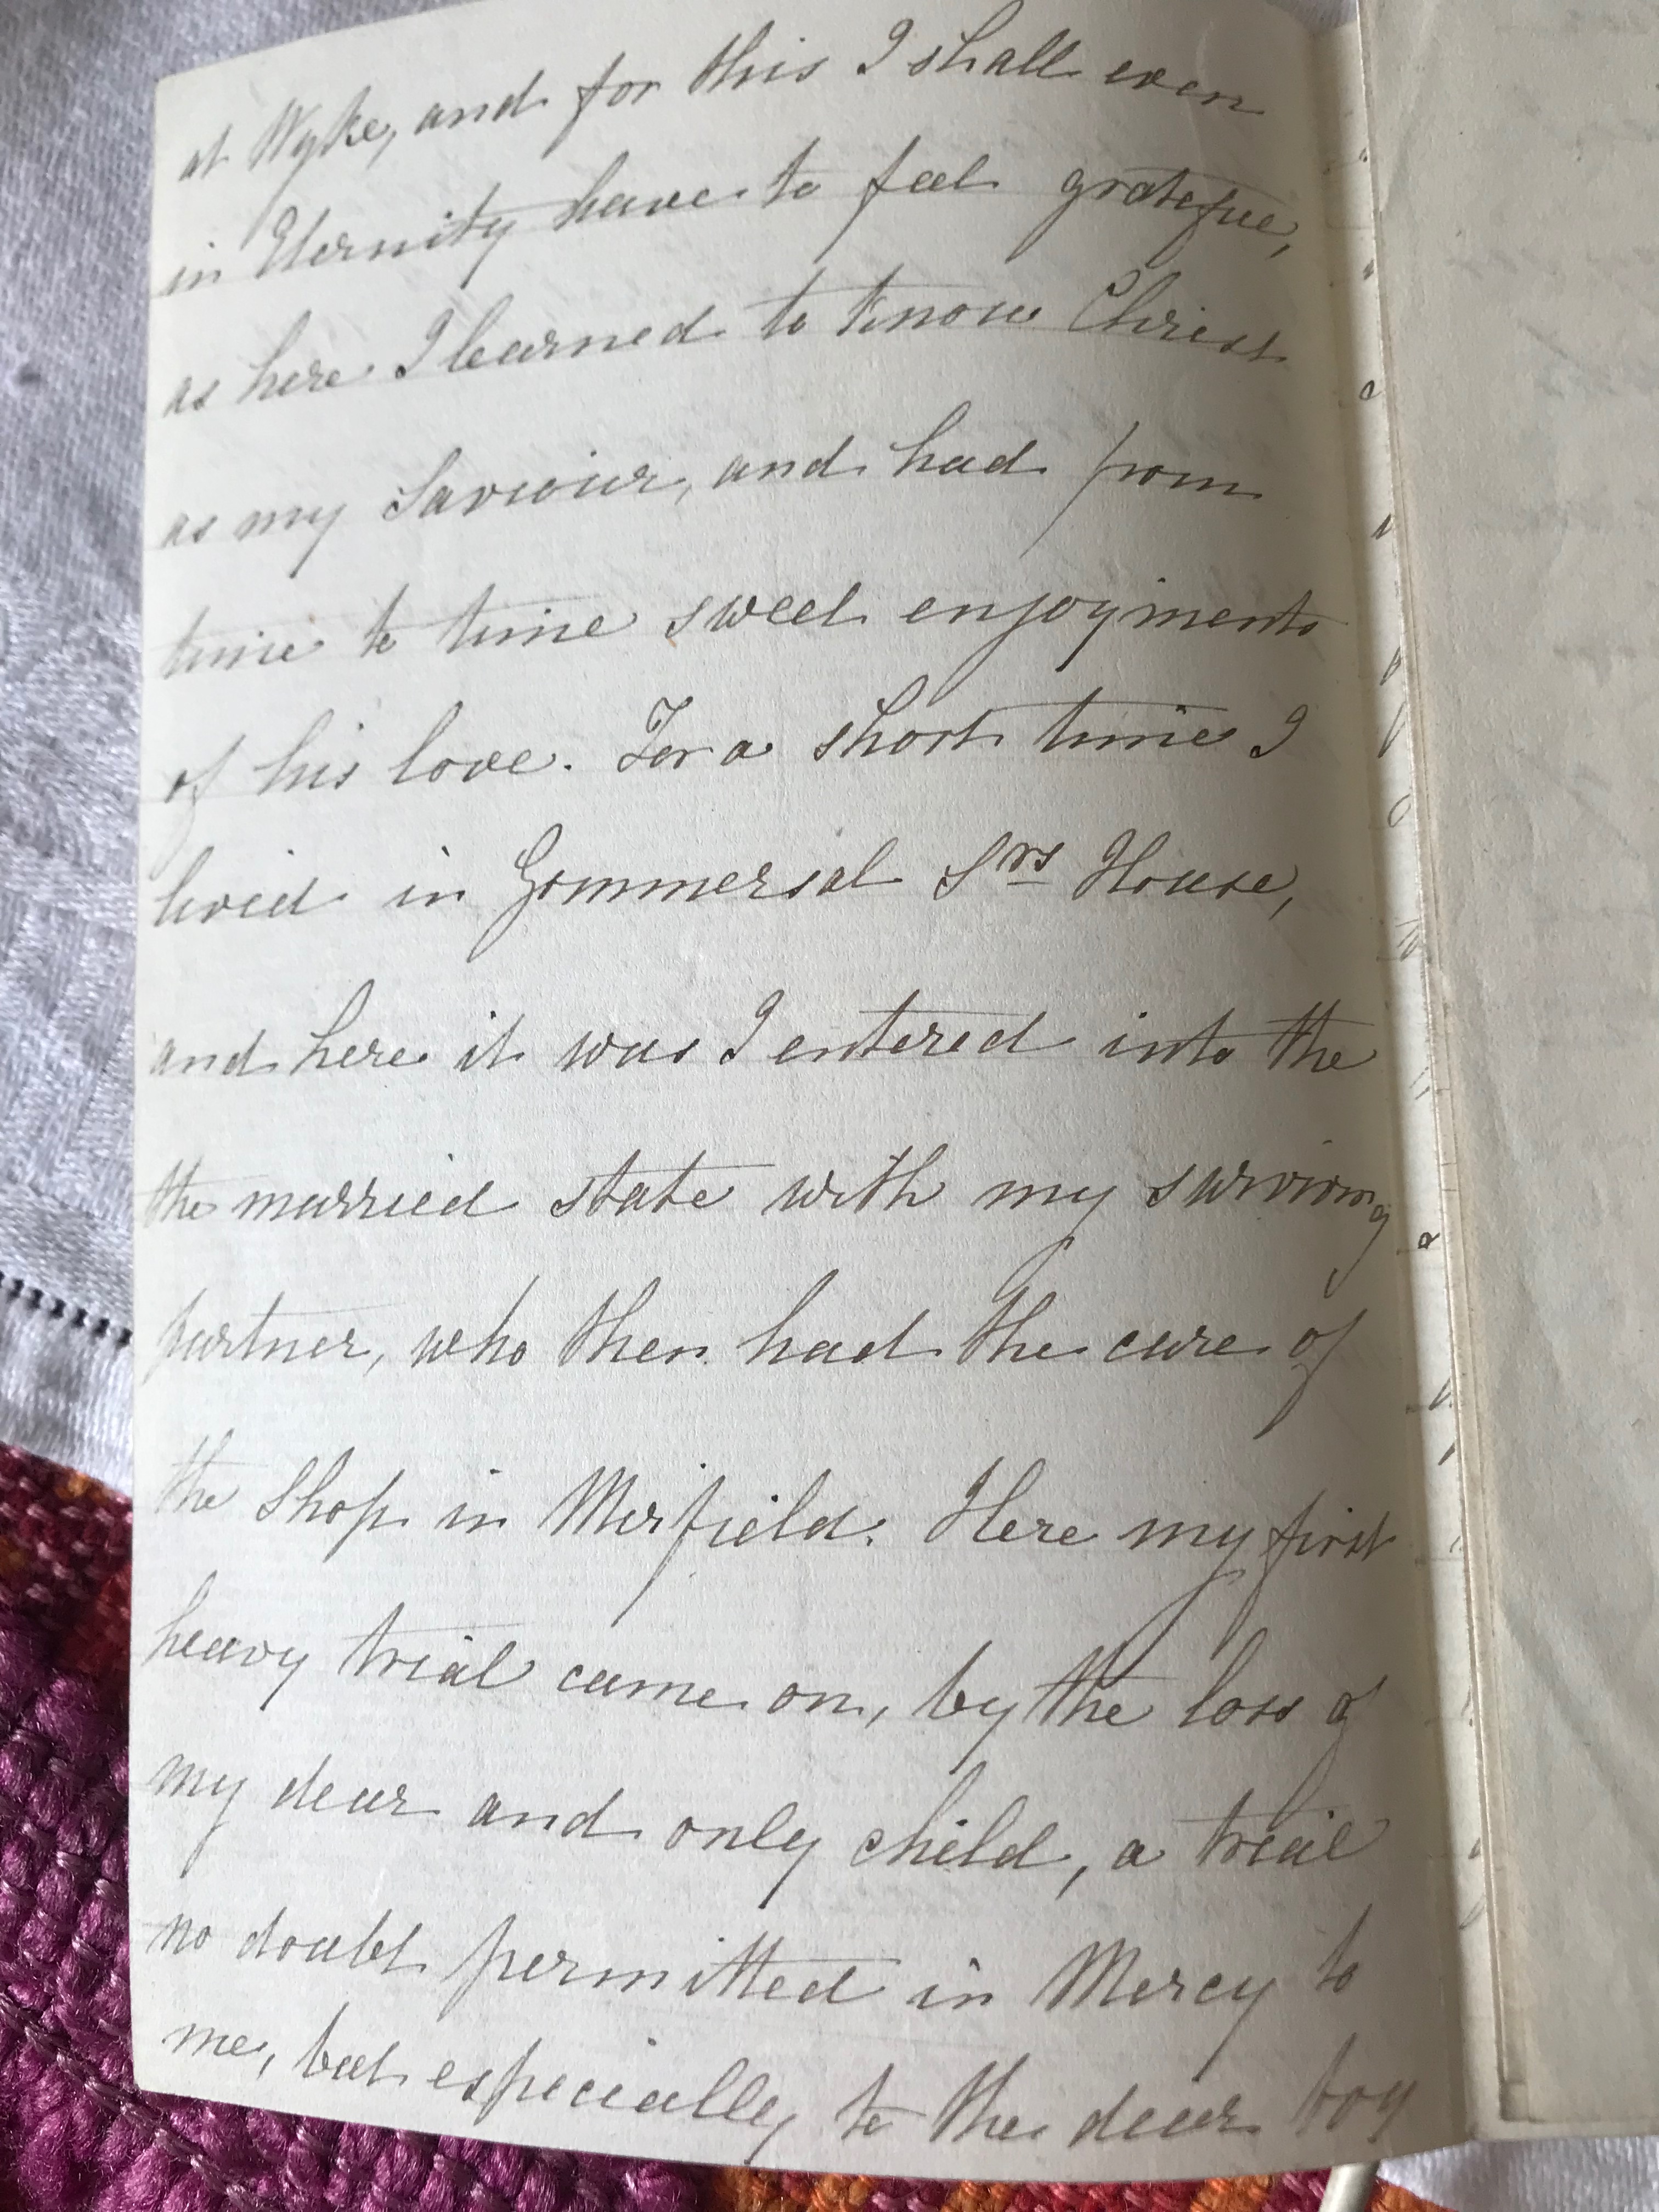 at Wyke, and for this I shall even
in Eternity have to feel grateful,
as here I learned to know Christ
as my Saviour, and had from
time to time sweet enjoyments
of his love. For a short time I
lived in Gommersal Srs House,
and here it was I entered into the
the married state with my surviving
partner, who then had the care of
the Shop in Mirfield. Here my first
heavy trial came on, by the loss of
my dear and only child, a trial
no doubt permitted in Mercy to
me, but especially to the dear boy